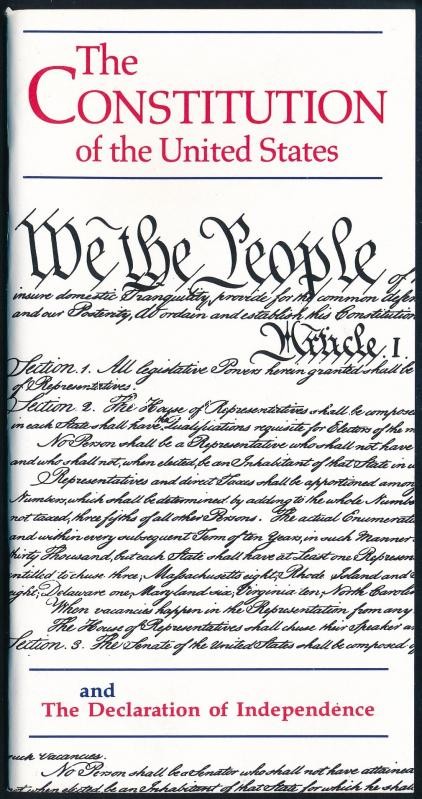 The
CONSTITUTION
of the United States
We the People of
insure domestic Tranquility, provide for the common defen
and our Posterity, do ordain and establish this Constitution
Article I.
Section. 1. All legislative Powers herein granted shall be
of Representatives.
Section. 2. The House of Representatives shall be compose
in each State shall have the Qualifications requisite for Electors of the m
No Person shall be a Representative who shall not have
and who shall not, when elected, be an Inhabitant of that State in w
Representatives and direct Taxes shall be apportioned among
Numbers, which shall be determined by adding to the whole Numbe
not taxed, three fifths of all other Persons. The actual Enumerati
and within every subsequent Term of ten Years, in such Manner
thirty Thousand, but each State shall have at Least one Represen
entitled to chuse three, Massachusetts eight, Rhode Island and
eight, Delaware one, Maryland six, Virginia ten, North Carolin
When vacancies happen in the Representation from any
The House of Representatives shall chuse their Speaker a
Section. 3. The Senate of the United States shall be composed o
and
The Declaration of Independence
such Vacancies.
No Person shall be a Senator who shall not have attained
not when elected, be an Inhabitant of that State for which he shall